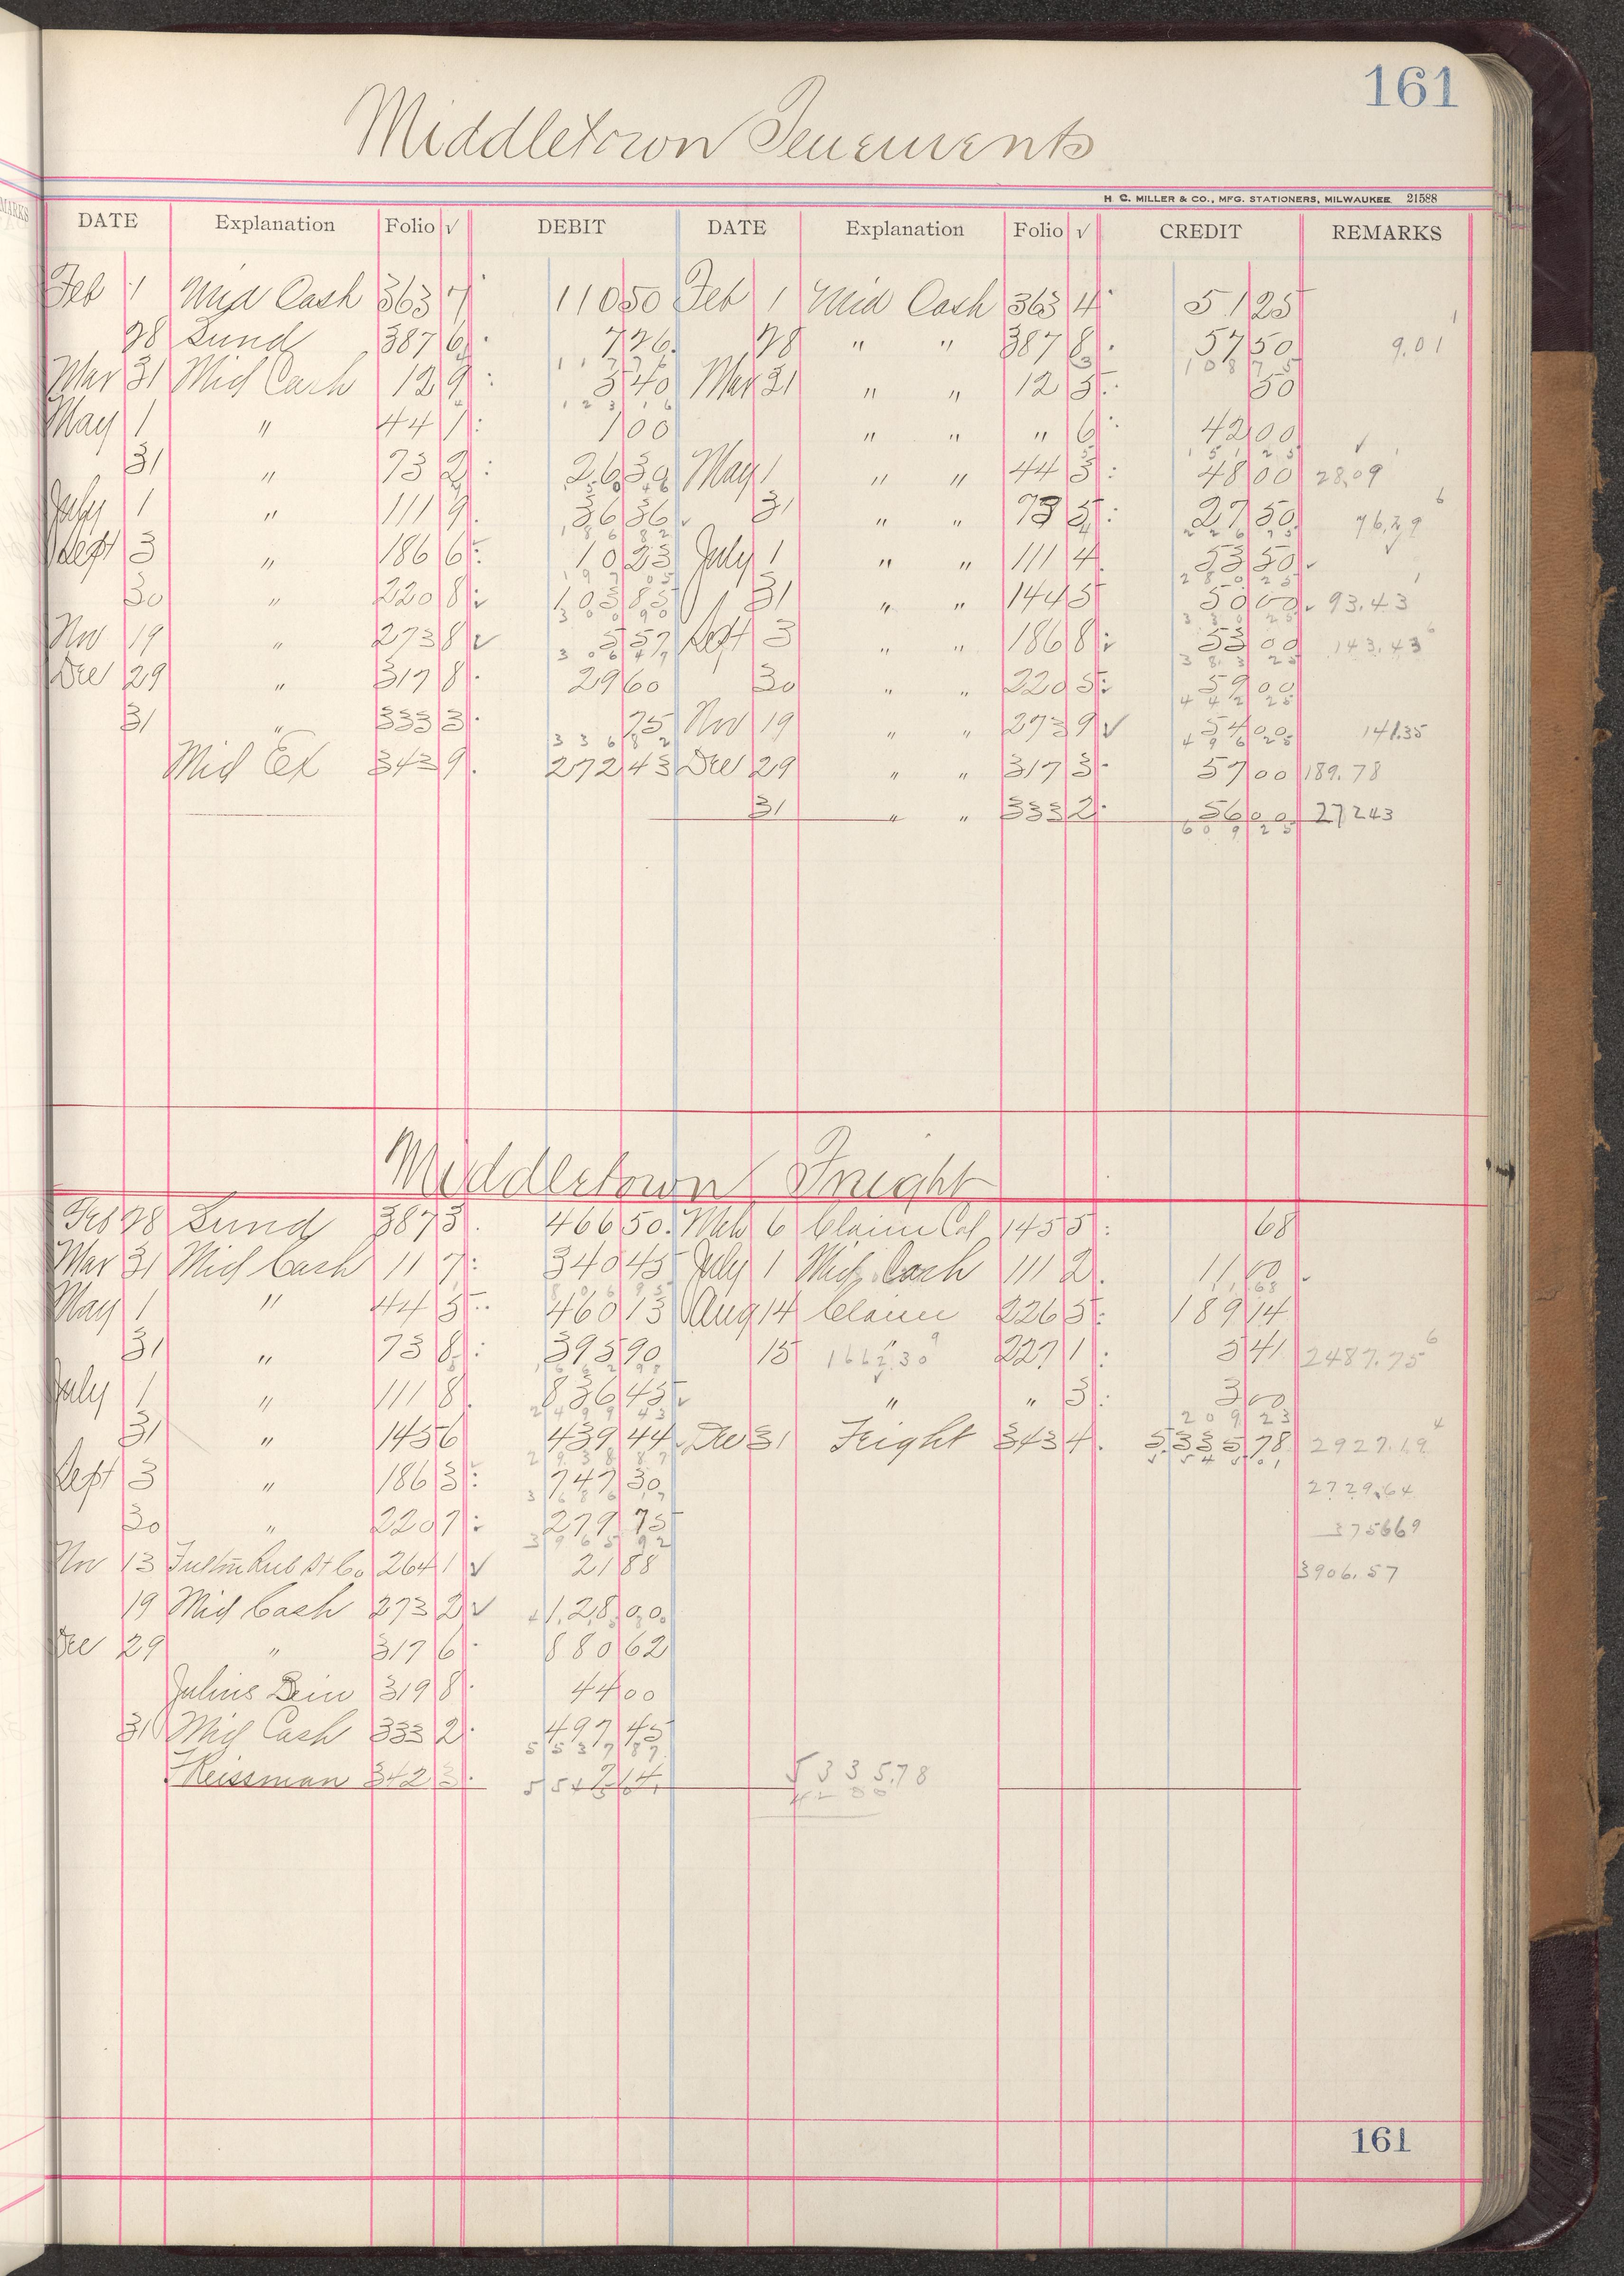 161
Middletown Tenements
H. C. MILLER & CO., MFG. STATIONERS, MILWAUKEE 21588
DATE Explanation Folio √ DEBIT DATE Explanation Folio √ CREDIT REMARKS
Feb 1 Mid Cash 363 7 110 50 Feb 1 Mid Cash 363 4 51 25
28 Lund 387 6 7 26 28 " " 387 8 57 50 9.01
Mar 31 Mid Cash 12 9 5 40 Mar 31 " " 12 5 50
May 1 " 44 7 1 00 " " " 6 42 00
31 " 73 2 26 30 May 1 " " 44 3 48 00 28.09
July 1 " 111 9 36 36 31 " " 73 5 27 50 76.29
Sept 3 " 186 6 10 23 July 1 " " 111 4 53 50
30 " 220 8 103 85 31 " " 144 5 50 00 93.43
Nov 19 " 273 8 √ 5 57 Sept 3 " " 186 8 53 00 143.43
Dec 29 " 317 8 29 60 30 " " 220 5 59 00
31 " 333 3 75 Nov 19 " " 273 9 √ 54 00 141.35
336 82
Mid Ex 343 9 272 43 Dec 29 " " 317 3 57 00 189.78
31 " " 333 2 56 00 272 43
609 25
Middletown Freight
Feb 28 Lund 387 3 466 50 Mch 6 Claim Col 145 5 68
Mar 31 Mid Cash 11 7 340 45 July 1 Mid Cash 111 2 11 60
May 1 " 44 5 460 13 Aug 14 Claim 226 5 189 14
31 " 73 8 395 90 15 227 1 5 41 2487.75
July 1 " 111 8 836 45 " " 3 3 00
209 23
31 " 145 6 439 44 Dec 31 Freight 343 4 5335 78 2927.19
Sept 3 " 186 3 747 30 2729.64
30 " 220 7 279 75 3756 69
Nov 13 264 1 √ 21 88 3906.57
19 Mid Cash 273 2 √ 128 00
Dec 29 " 317 6 880 62
Julius 319 8 44 00
31 Mid Cash 333 2 497 45
Reissman 342 3 5335.78
161